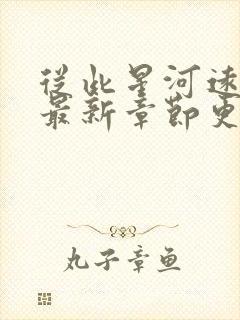 從此星河速
最新章節更
丸子章鱼